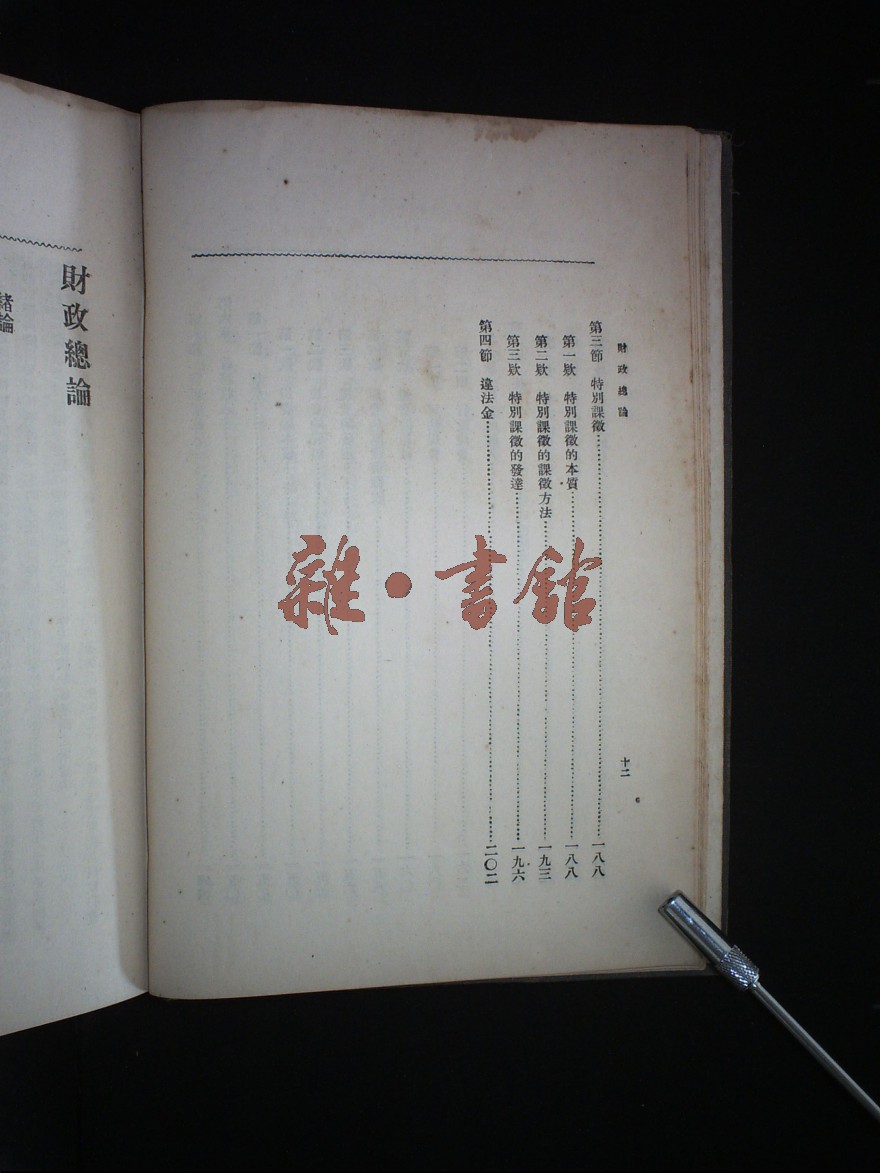 財政總論
十二
第三節 特別課徵……一八八
第一欵 特別課徵的本質……一八八
第二欵 特別課徵的課徵方法……一九三
第三欵 特別課徵的發達……一九六
第四節 違法金……二〇二
雜·書館
財政總論
緒論